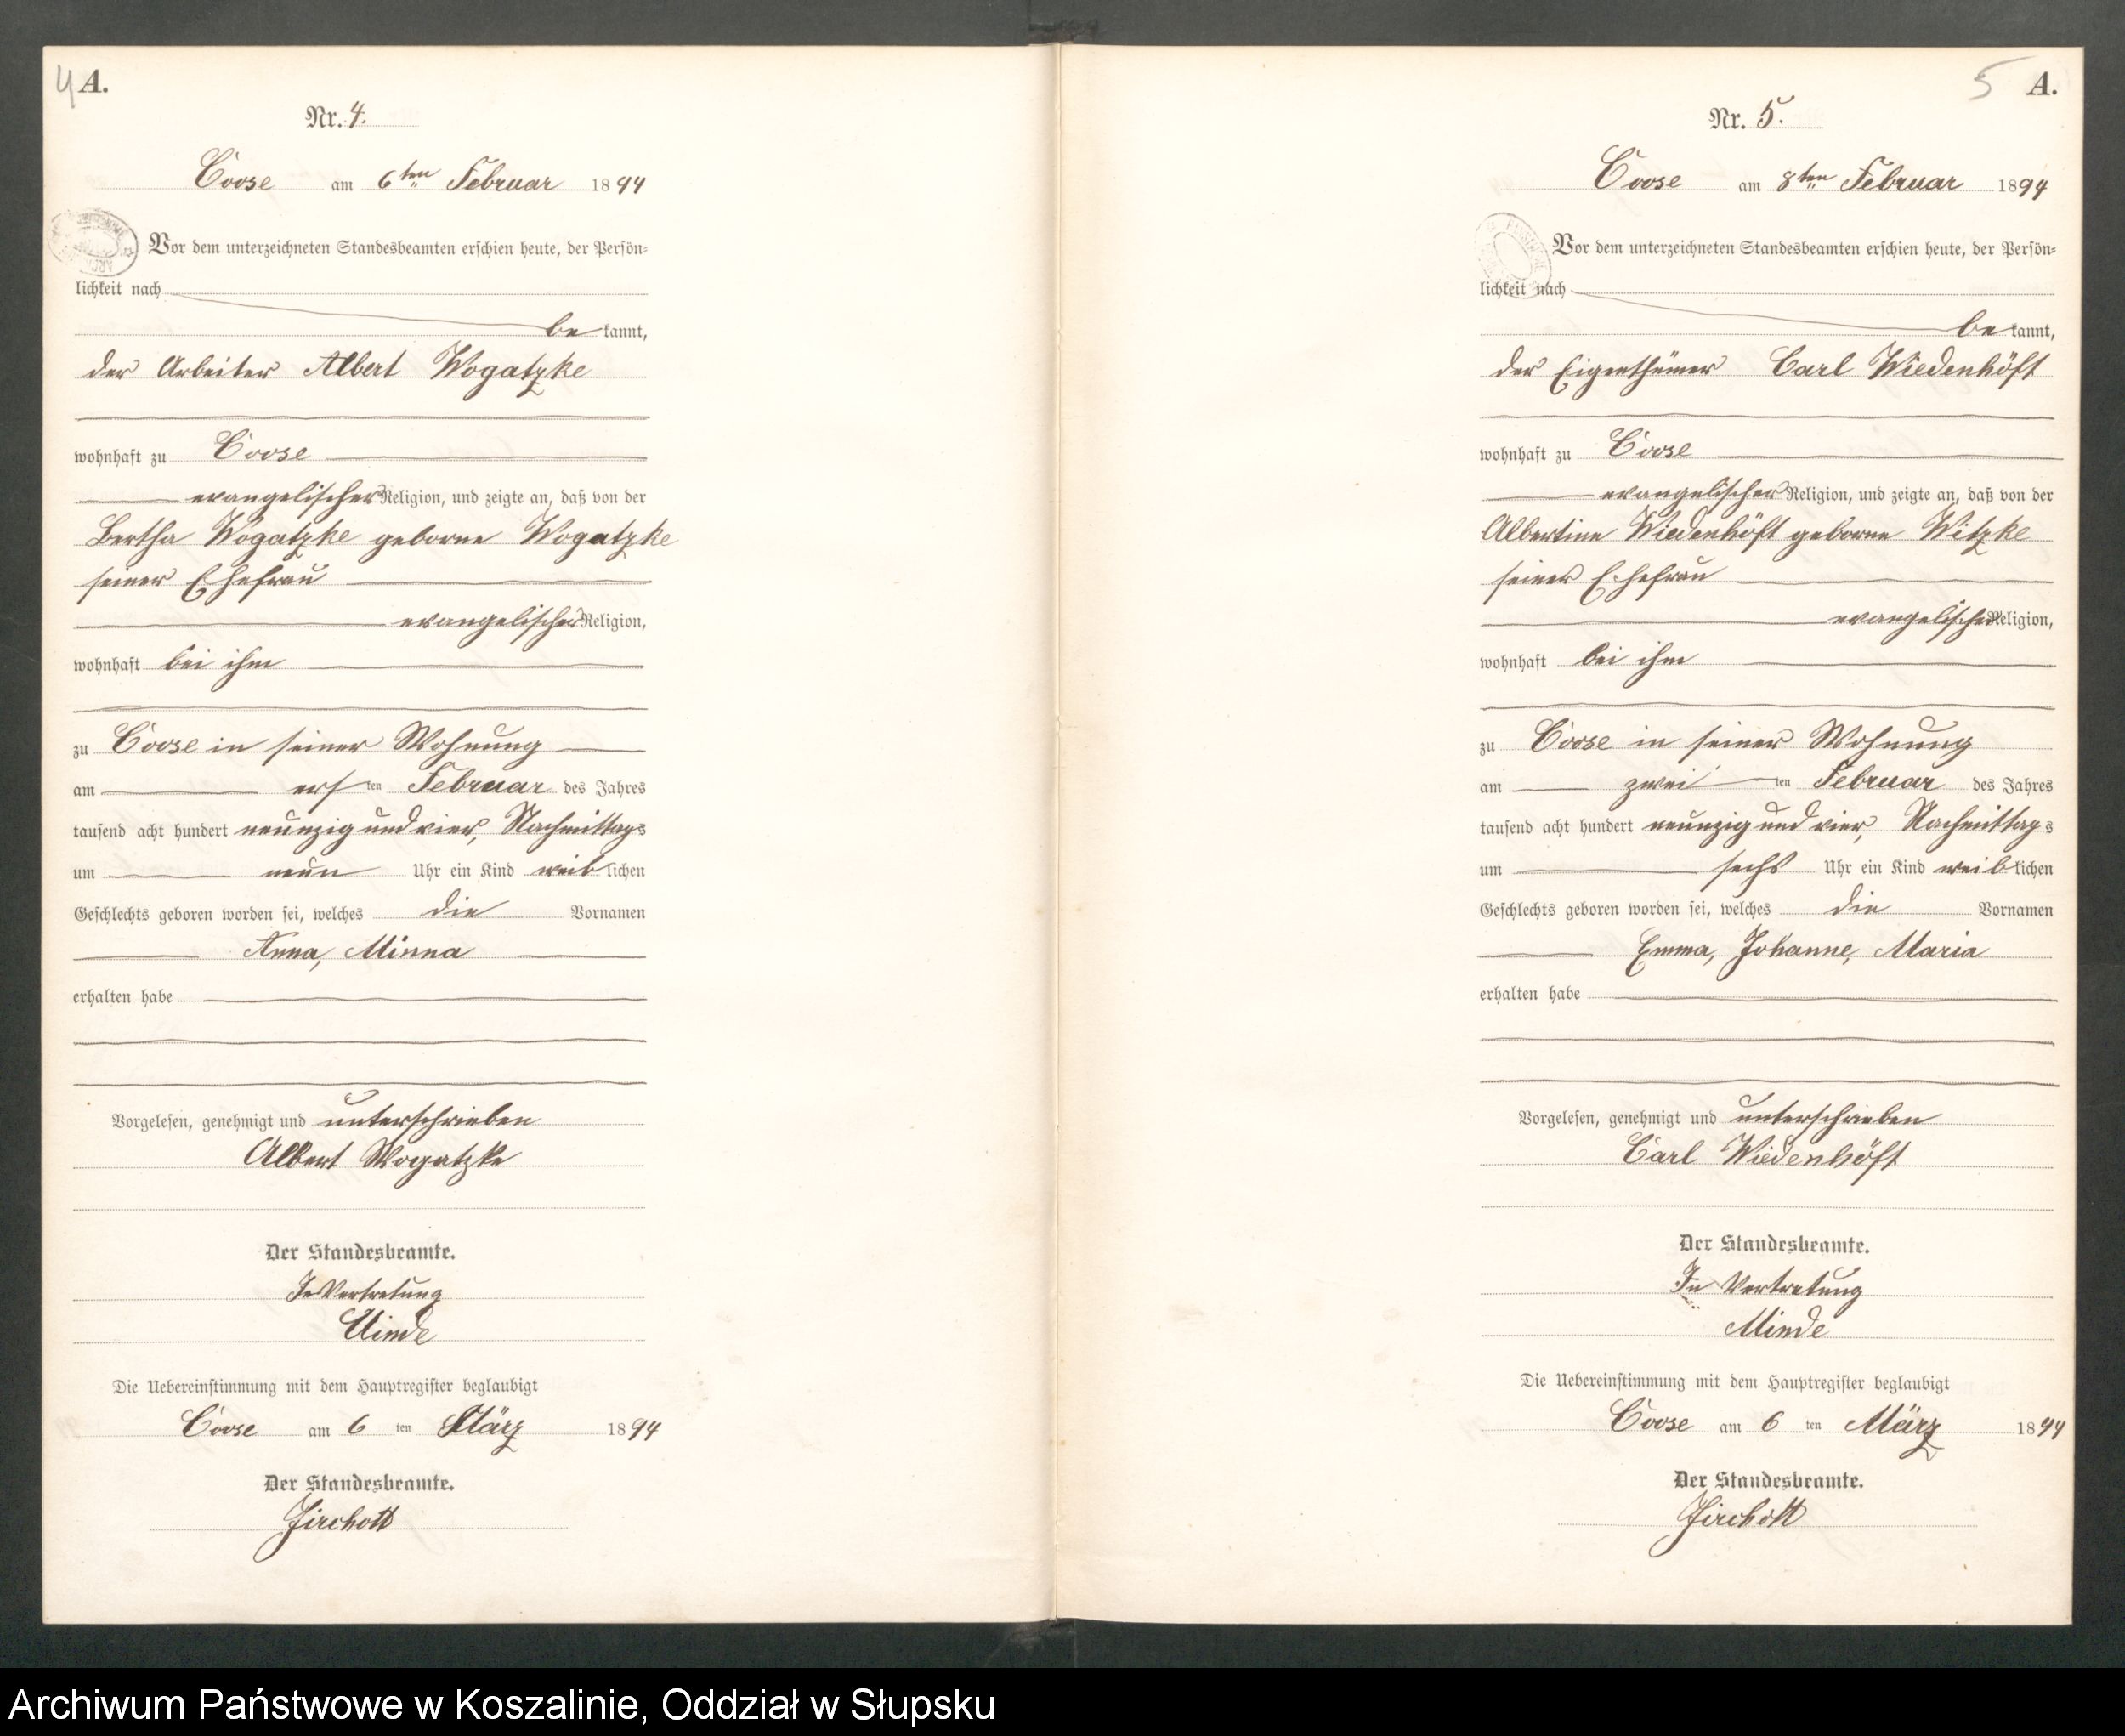 4 A.
Nr. 4.
Coose am 6ten Februar 1894
Vor dem unterzeichneten Standesbeamten erschien heute, der Persön-
lichkeit nach
be kannt,
der Arbeiter Albert Wogatzke
wohnhaft zu Coose
evangelischer Religion, und zeigte an, daß von der
Bertha Wogatzke geborne Wogatzke
seiner Ehefrau
evangelischer Religion,
wohnhaft bei ihm
zu Coose in seiner Wohnung
am ersten Februar des Jahres
tausend acht hundert neunzig und vier, Nachmittags
um neun Uhr ein Kind weiblichen
Geschlechts geboren worden sei, welches die Vornamen
Anna, Minna
erhalten habe
Vorgelesen, genehmigt und unterschrieben
Albert Wogatzke
Der Standesbeamte.
In Vertretung
Minde
Die Uebereinstimmung mit dem Hauptregister beglaubigt
Coose am 6 ten März 1894
Der Standesbeamte.
5 A.
Nr. 5.
Coose am 8ten Februar 1894
Vor dem unterzeichneten Standesbeamten erschien heute, der Persön-
lichkeit nach
be kannt,
der Eigenthümer Carl Wiedenhöft
wohnhaft zu Coose
evangelischer Religion, und zeigte an, daß von der
Albertine Wiedenhöft geborne Witzke
seiner Ehefrau
evangelischer Religion,
wohnhaft bei ihm
zu Coose in seiner Wohnung
am zweiten Februar des Jahres
tausend acht hundert neunzig und vier, Nachmittags
um sechs Uhr ein Kind weiblichen
Geschlechts geboren worden sei, welches die Vornamen
Emma, Johanne, Maria
erhalten habe
Vorgelesen, genehmigt und unterschrieben
Carl Wiedenhöft
Der Standesbeamte.
In Vertretung
Minde
Die Uebereinstimmung mit dem Hauptregister beglaubigt
Coose am 6 ten März 1894
Der Standesbeamte.
Archiwum Państwowe w Koszalinie, Oddział w Słupsku